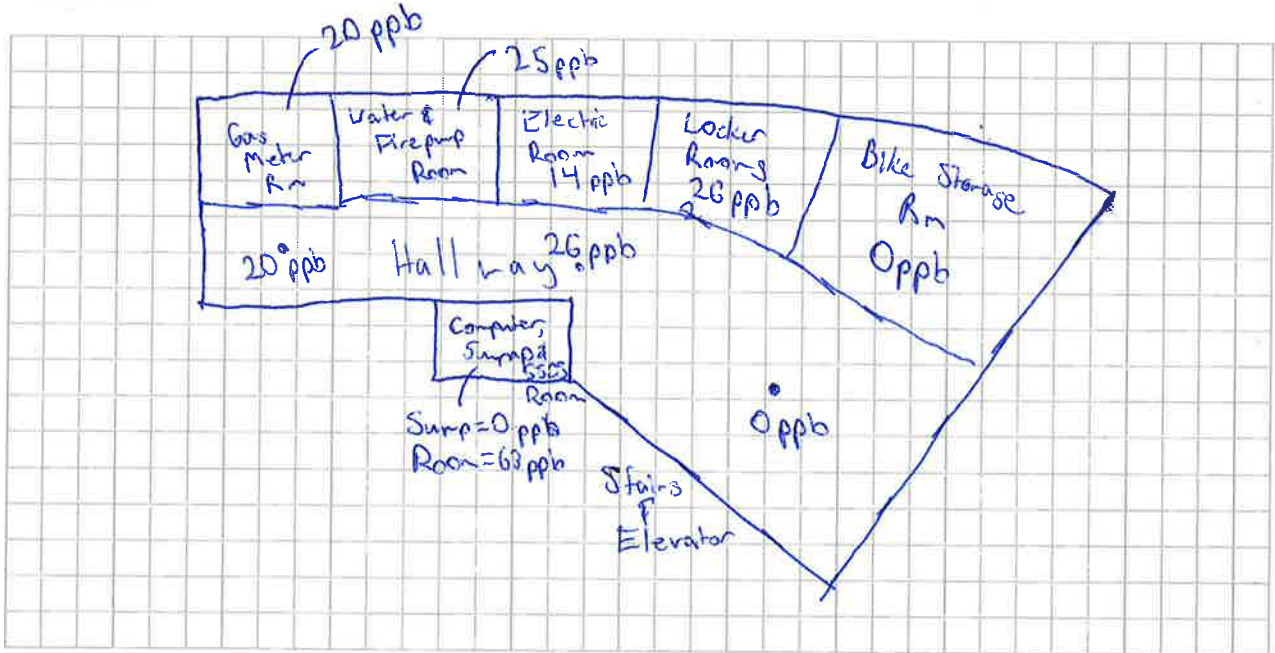 20 ppb
25 ppb
Gas
Meter
Rm
Water &
Firepump
Room
Electric
Room
14 ppb
Locker
Rooms
26 ppb
Bike Storage
Rm
0ppb
20 ppb
Hallway
26 ppb
Computer,
Sump &
SSDS
Room
Sump=0 ppb
Room=63 ppb
0 ppb
Stairs
&
Elevator